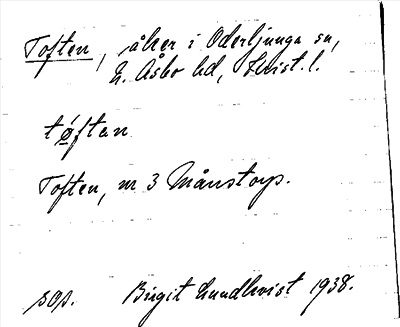 Toften, åker i Oderljunga sn,
N. Åsbo hd, Krist. l.
tøftan
Toften, nr 3 Månstorp.
sop. Birgit Lundkvist 1938.